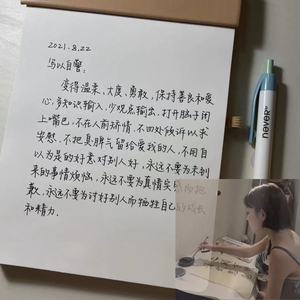 2021.8.22
写以自警:
变得温柔、大度、勇敢,保持善良和爱
心,多知识输入,少观点输出,打开脑子闭
上嘴巴,不在人前矫情,不四处诉说以求
安慰,不把真脾气留给爱我的人,不用自
以为是的好意对别人好,永远不要为未到
来的事情烦恼,永远不要为真情实感而抱
歉,永远不要为讨好别人而牺牲自己的成长
和精力.
never